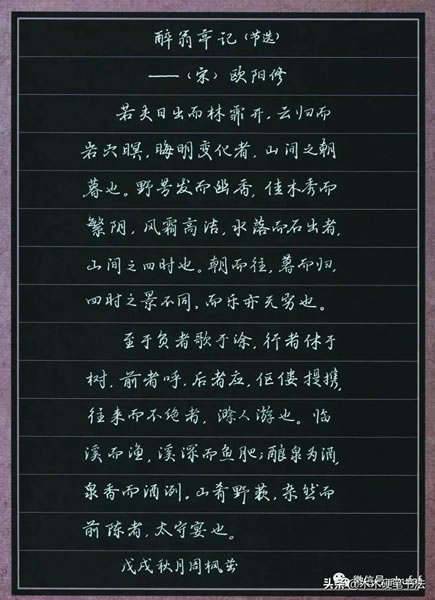 醉翁亭记（节选）
——（宋）欧阳修
若夫日出而林霏开，云归而
岩穴暝，晦明变化者，山间之朝
暮也。野芳发而幽香，佳木秀而
繁阴，风霜高洁，水落而石出者，
山间之四时也。朝而往，暮而归，
四时之景不同，而乐亦无穷也。
至于负者歌于涂，行者休于
树，前者呼，后者应，伛偻提携，
往来而不绝者，滁人游也。临
溪而渔，溪深而鱼肥；酿泉为酒，
泉香而酒洌。山肴野蔌，杂然而
前陈者，太守宴也。
戊戌秋月周枫
微信号
头条@木木硬笔书法